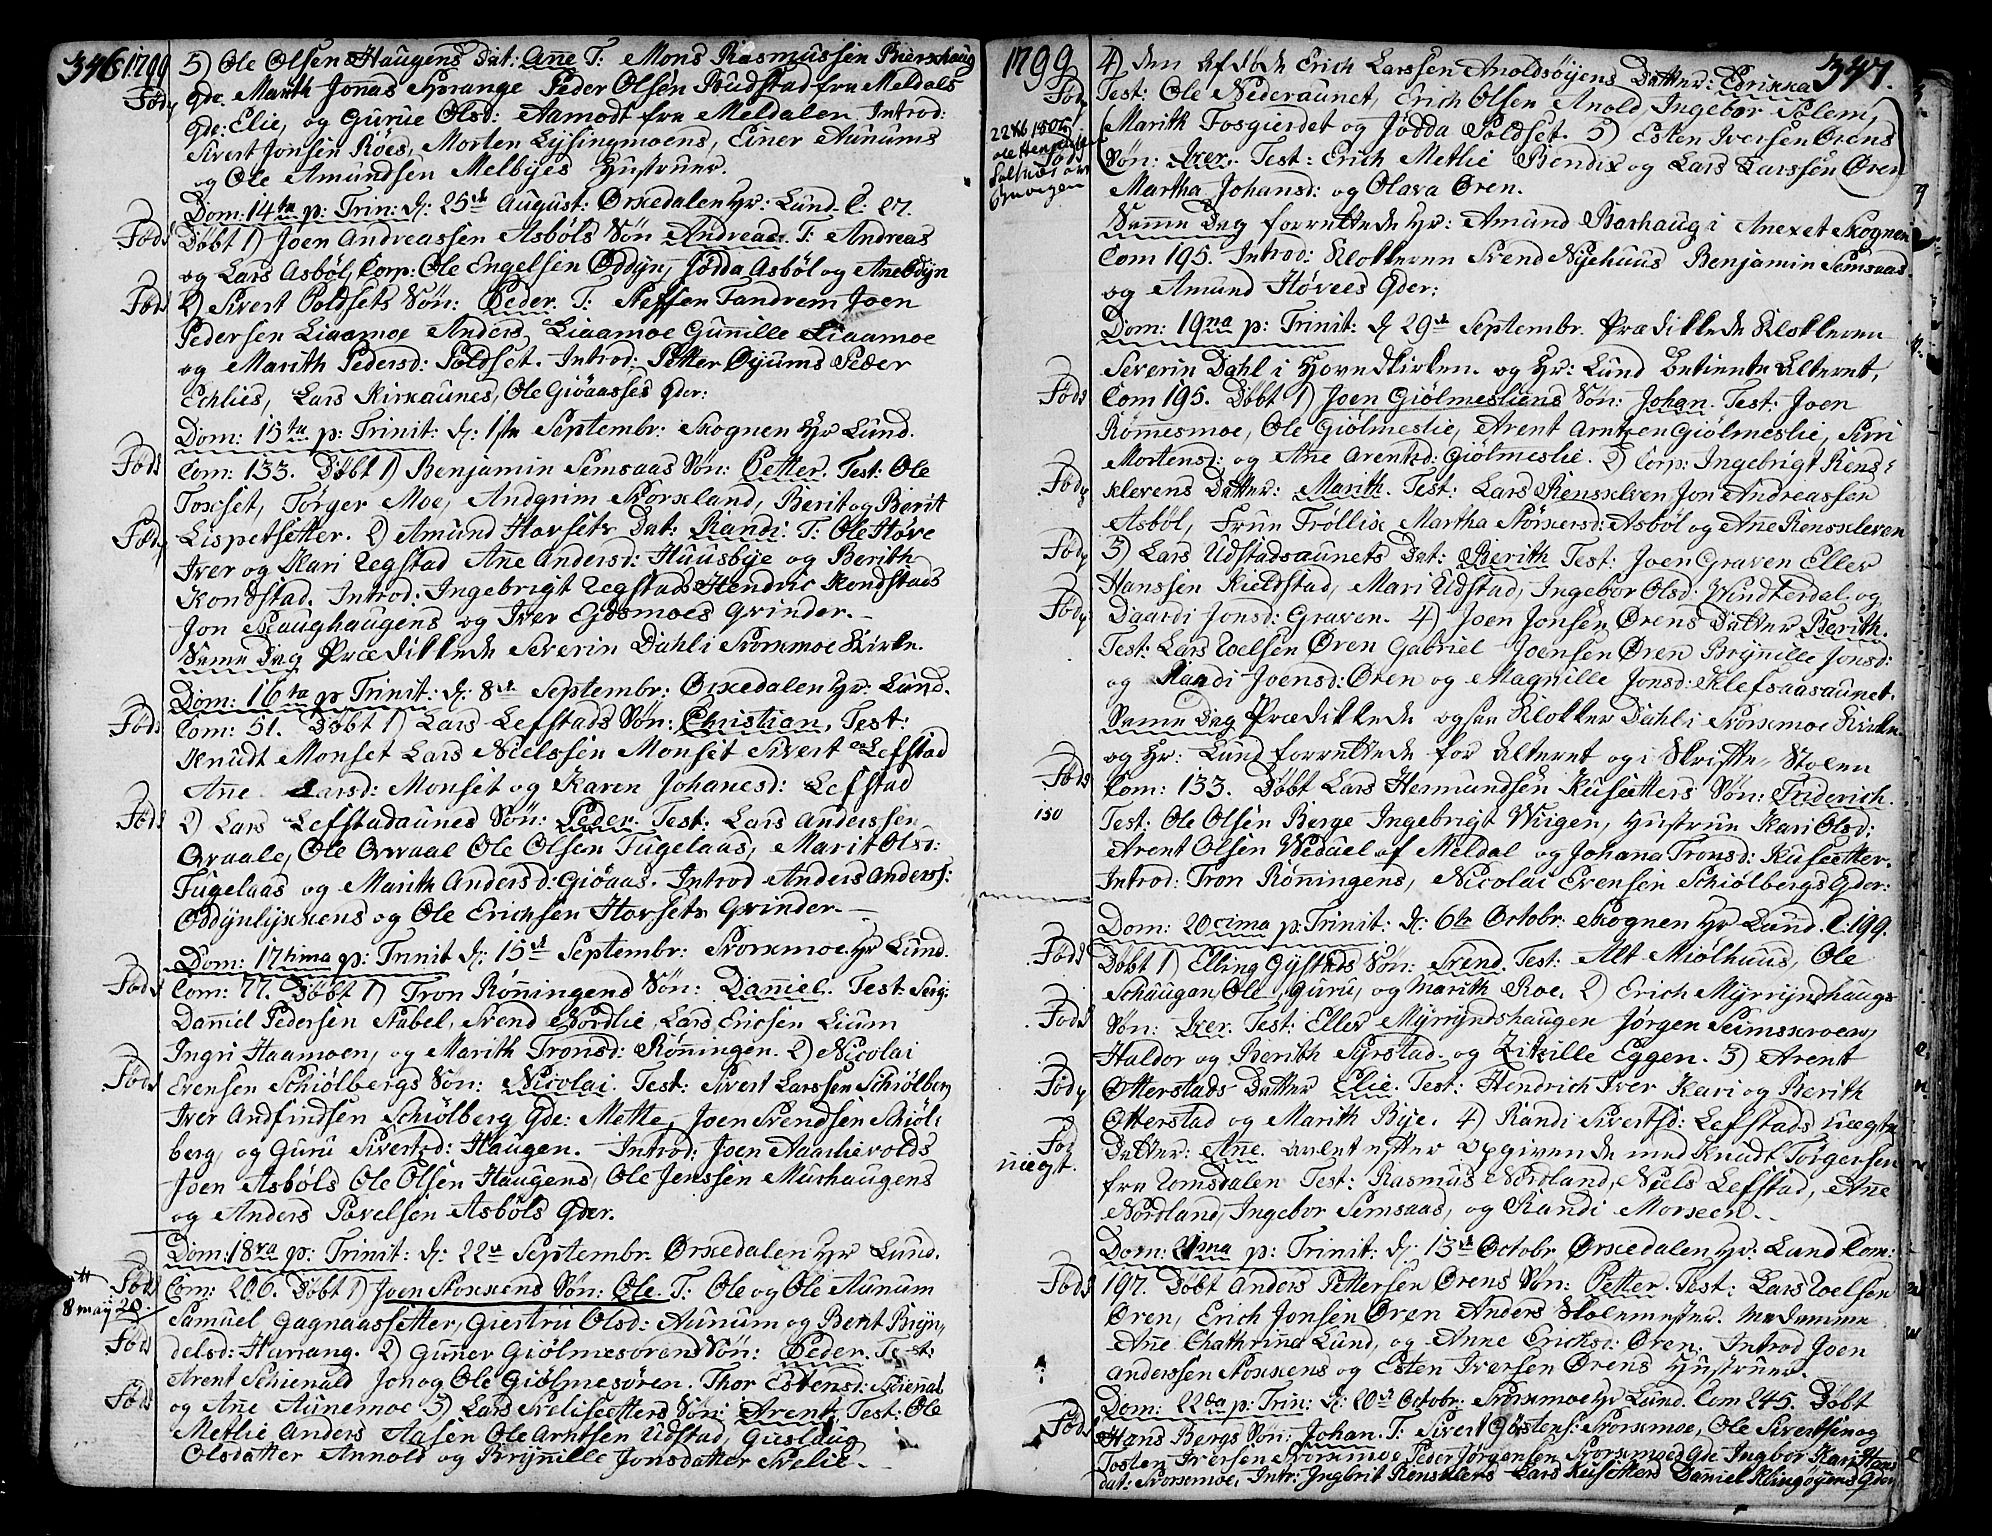 346 1799
5) Ole Olsen Haugens Dat: Añe T: Mons Rasmussen Bierschaug
Qde. Marith Jonas Sprange Peder Olsen Rudstad fra Meldals
Fød
Qde: Elie, og Gurue Olsd: Aamodt fra Meldalen. Introd:
Sivert Jonsen Röes, Morten Lysingmoens, Einer Aunums
og Ole Amundsen Melbyes Hustruer.
Dom: 14ta p: Trin: d: 25de August: Ørkedalen Hr: Lund. C: 27.
Føds
Døbt 1) Joen Andreassen Asböls Søn Andreas. T: Andreas
og Lars Asböl, Corp: Ole Engelsen Oddyn, Jödda Asböl og Ane Odyn
Føds
2) Sivert Poldsets Søn: Peder. T: Steffen Tandrem Joen
Pedersen Liaamoe Anders Liaamoe Guñille Liaamoe
og Marith Pedersd: Poldset. Introd: Petter Oyums Peder
Echlies, Lars Kirkaunes, Ole Giöaasses Qder:
Dom: 15ta p: Trinit: d: 1ste Septembr: Skognen Hr Lund.
Føds
Com: 133. Døbt 1) Benjamin Semsaas Søn: Petter. Test: Ole
Toxset, Törger Moe, Andgrim Storkland, Berit og Berit
Fød
Lispetsetter. 2) Amund Hovsets Dat: Randi. T: Ole Höve
Iver og Kari Legstad Añe Andersd: Huusbye og Berith
Kondstad. Introd: Ingebrigt Legstads Hendric Kondstads
Jon Skaughaugens og Iver Eidsmoes Qvinder.
Same Dag Prædikkede Severin Dahl i Storkmoe Kirke.
Dom: 16ta p Trinit: d: 8de Septembr: Ørkedalen Hr: Lund.
Føds
Com: 51. Døbt 1) Lars Lefstads Søn: Christian. Test:
Knudt Monset Lars Nielssen Monset Sivert Lefstad
Añe Larsd: Monset og Karen Johanesd: Lefstad
Føds
2) Lars Lefstadaunes Søn: Peder. Test: Lars Anderssen
Qvaale, Ole Qvaal Ole Olsen Fugelaas, Marit Olsd:
Fugelaas og Marith Andersd: Giöaas. Introd Anders Anderss:
Oddynlykkens og Ole Erichsen Hovsets Qvinder.
Dom: 17tima p: Trinit d: 15de Septembr: Storkmoe Hr Lund.
Føds
Com: 77. Døbt 1) Tron Röñingens Søn: Daniel. Test: Serg:
Daniel Pedersen Stabel, Svend Nordlie, Lars Ericsen Lium
Ingri Haamoen, og Marith Tronsd: Röñingen. 2) Nicolai
Føds
Evensen Schiölbergs Søn: Nicolai. Test: Sivert Larssen Schiölberg
Iver Andfindsen Schiölberg Qde: Mette, Joen Svendsen Schiöl:
berg og Guru Sivertsd: Haugen. Introd: Joen Aarlievolds
Joen Asböls Ole Olsen Haugens, Ole Jenssen Murhaugens
og Anders Pavelsen Asböls Qder.
Dom: 18va p: Trinit: d: 22de Septembr: Ørkedalen Hr Lund.
Føds
Com: 206. Døbt 1) Joen Stokkens Søn: Ole. T: Ole og Ole Aunum
8 may 20.
Samuel Gagnaassetter, Giertru Olsd: Aunum og Berit Bryn,
Føds
delsd: Harang. 2) Guñer Giölmesörens Søn: Peder. Test:
Arent Schienald Jon og Ole Giölmesören. Thor Estensd: Schienal
Føds
og Añe Aunemoe 3) Lars Svelisetters Søn: Arent. Test: Ole
Metlie Anders Aasen Ole Arntsen Udstad, Guslaug
Olsdatter Annold og Bryñille Jonsdatter Svelie.
1799 347.
4) Den Afdøde Erich Larssen Anoldsöyens Datter: Erikka
Fød
Test: Ole Nederaunet, Erich Olsen Anold, Ingebor Solem,
Marith Fosgierdet og Jödda Poldset. 5) Esten Iversen Ørens
Føds
Søn: Iver. Test: Erich Metlie Bendix og Lars Larssen Øren
Martha Johansd: og Olava Øren.
Same Dag forrettede Hr: Amund Barhaug i Anexet Skognen
Com 195. Introd: Klokkeren Svend Nyehuus Benjamin Semsaas
og Amund Hövees Qder:
Dom: 19na p: Trinit: d 29de Septembr. Prædikkede Klokkeren
Severin Dahl i Hovedkirken. og Hr: Lund betiente Alteret,
Føds
Com 195. Døbt 1) Joen Giölmesliens Søn: Johan. Test: Joen
Römesmoe, Ole Giölmeslie, Arent Arntzen Giölmeslie, Siri
Mortensd: og Añe Arentsd: Giölmeslie. 2) Corp: Ingebrigt Rens:
Fød
klevens Datter: Marith. Test: Lars Rensklven, Jon Andreassen
Asböl, Frue Tröllix Martha Störkersd: Asböl og Añe Rensklven
Fød
3) Lars Udstadsaunets Dat: Berith. Test: Joen Graven Eller
Hanssen Kieldstad, Mari Udstad, Ingebor Olsd: Windterdal og
Fød
Daardi Jonsd: Graven. 4) Joen Jonsen Ørens Datter Berith.
Test: Lars Zoelsen Øren Gabriel Joensen Øren Bryñille Jonsd:
og Randi Joensd: Øren og Magnille Jonsd: Klefsaasaunet.
Same Dag Prædikkede ogsaa Klokker Dahl i Storkmoe Kirke.
og Hr: Lund forrettede for Alteret og i Skrifte-Stolen
Føds
Com: 133. Døbt Lars Hermundsen Kusetters Søn: Friderich.
150
Test: Ole Olsen Berge Ingebrigt Wigen, Hustrue Kari Olsd:
Arent Olsen Weduel af Meldal og Johana Tronsd: Kusetter.
Introd: Tron Röñingens, Nicolai Evensen Schiölbergs Qder:
Dom: 20cima p: Trinit: d: 6te Octobr: Skognen Hr Lund. C: 199.
Føds
Døbt 1) Elling Gystads Søn: Svend. Test: Alt Miölhuus, Ole
Schaugan, Ole, Guru, og Marith Roe. 2) Erich Myrryndhaugs
Føds
Søn: Iver. Test: Eller Myrryndshaugen Jörgen Semskroen,
Haldor og Berith Syrstad og Zitzille Eggen. 3) Arent
Fød
Otterstads Datter Elie. Test: Hendrich Iver Kari og Berith
Otterstad og Marith Bye. 4) Randi Sivertsd: Lefstads uægte
Fød
uægt.
Datter: Ane. avlet efter opgivende med Knudt Torgersen
fra Romsdalen Test: Rasmus Nordland, Niels Lefstad, Añe
Nordland, Ingebor Semsaas, og Randi Morkeen.
Dom: 21ma p: Trinit: d: 13de Octobr Ørkedalen Hr: Lund Com:
Føds
197. Døbt Anders Pettersen Ørens Søn: Petter. Test: Lars Zoelsen
Øren, Erich Jonsen Øren Anders Skolemester. Madamme
Añe Chathrina Lund, og Anne Erichsd: Øren. Introd Joen
Anderssen Stokkens og Esten Iversen Ørens Hustruer.
Dom: 22da p: Trin: d: 20de Octobr: Storkmoe Hr Lund. Com 245. Døbt
Føds
Hans Bergs Søn: Johan. T: Sivert Gostens: Storkmoe, Ole Sivertsen og
Tosten Iversen Storkmoe Peder Jörgensen Storkmoes Qde Ingbor Kari Hans
dat: Storkmoe, Intr: Ingbrit Rensklevs Lars Kusetters Daniel Klingöyens Qder